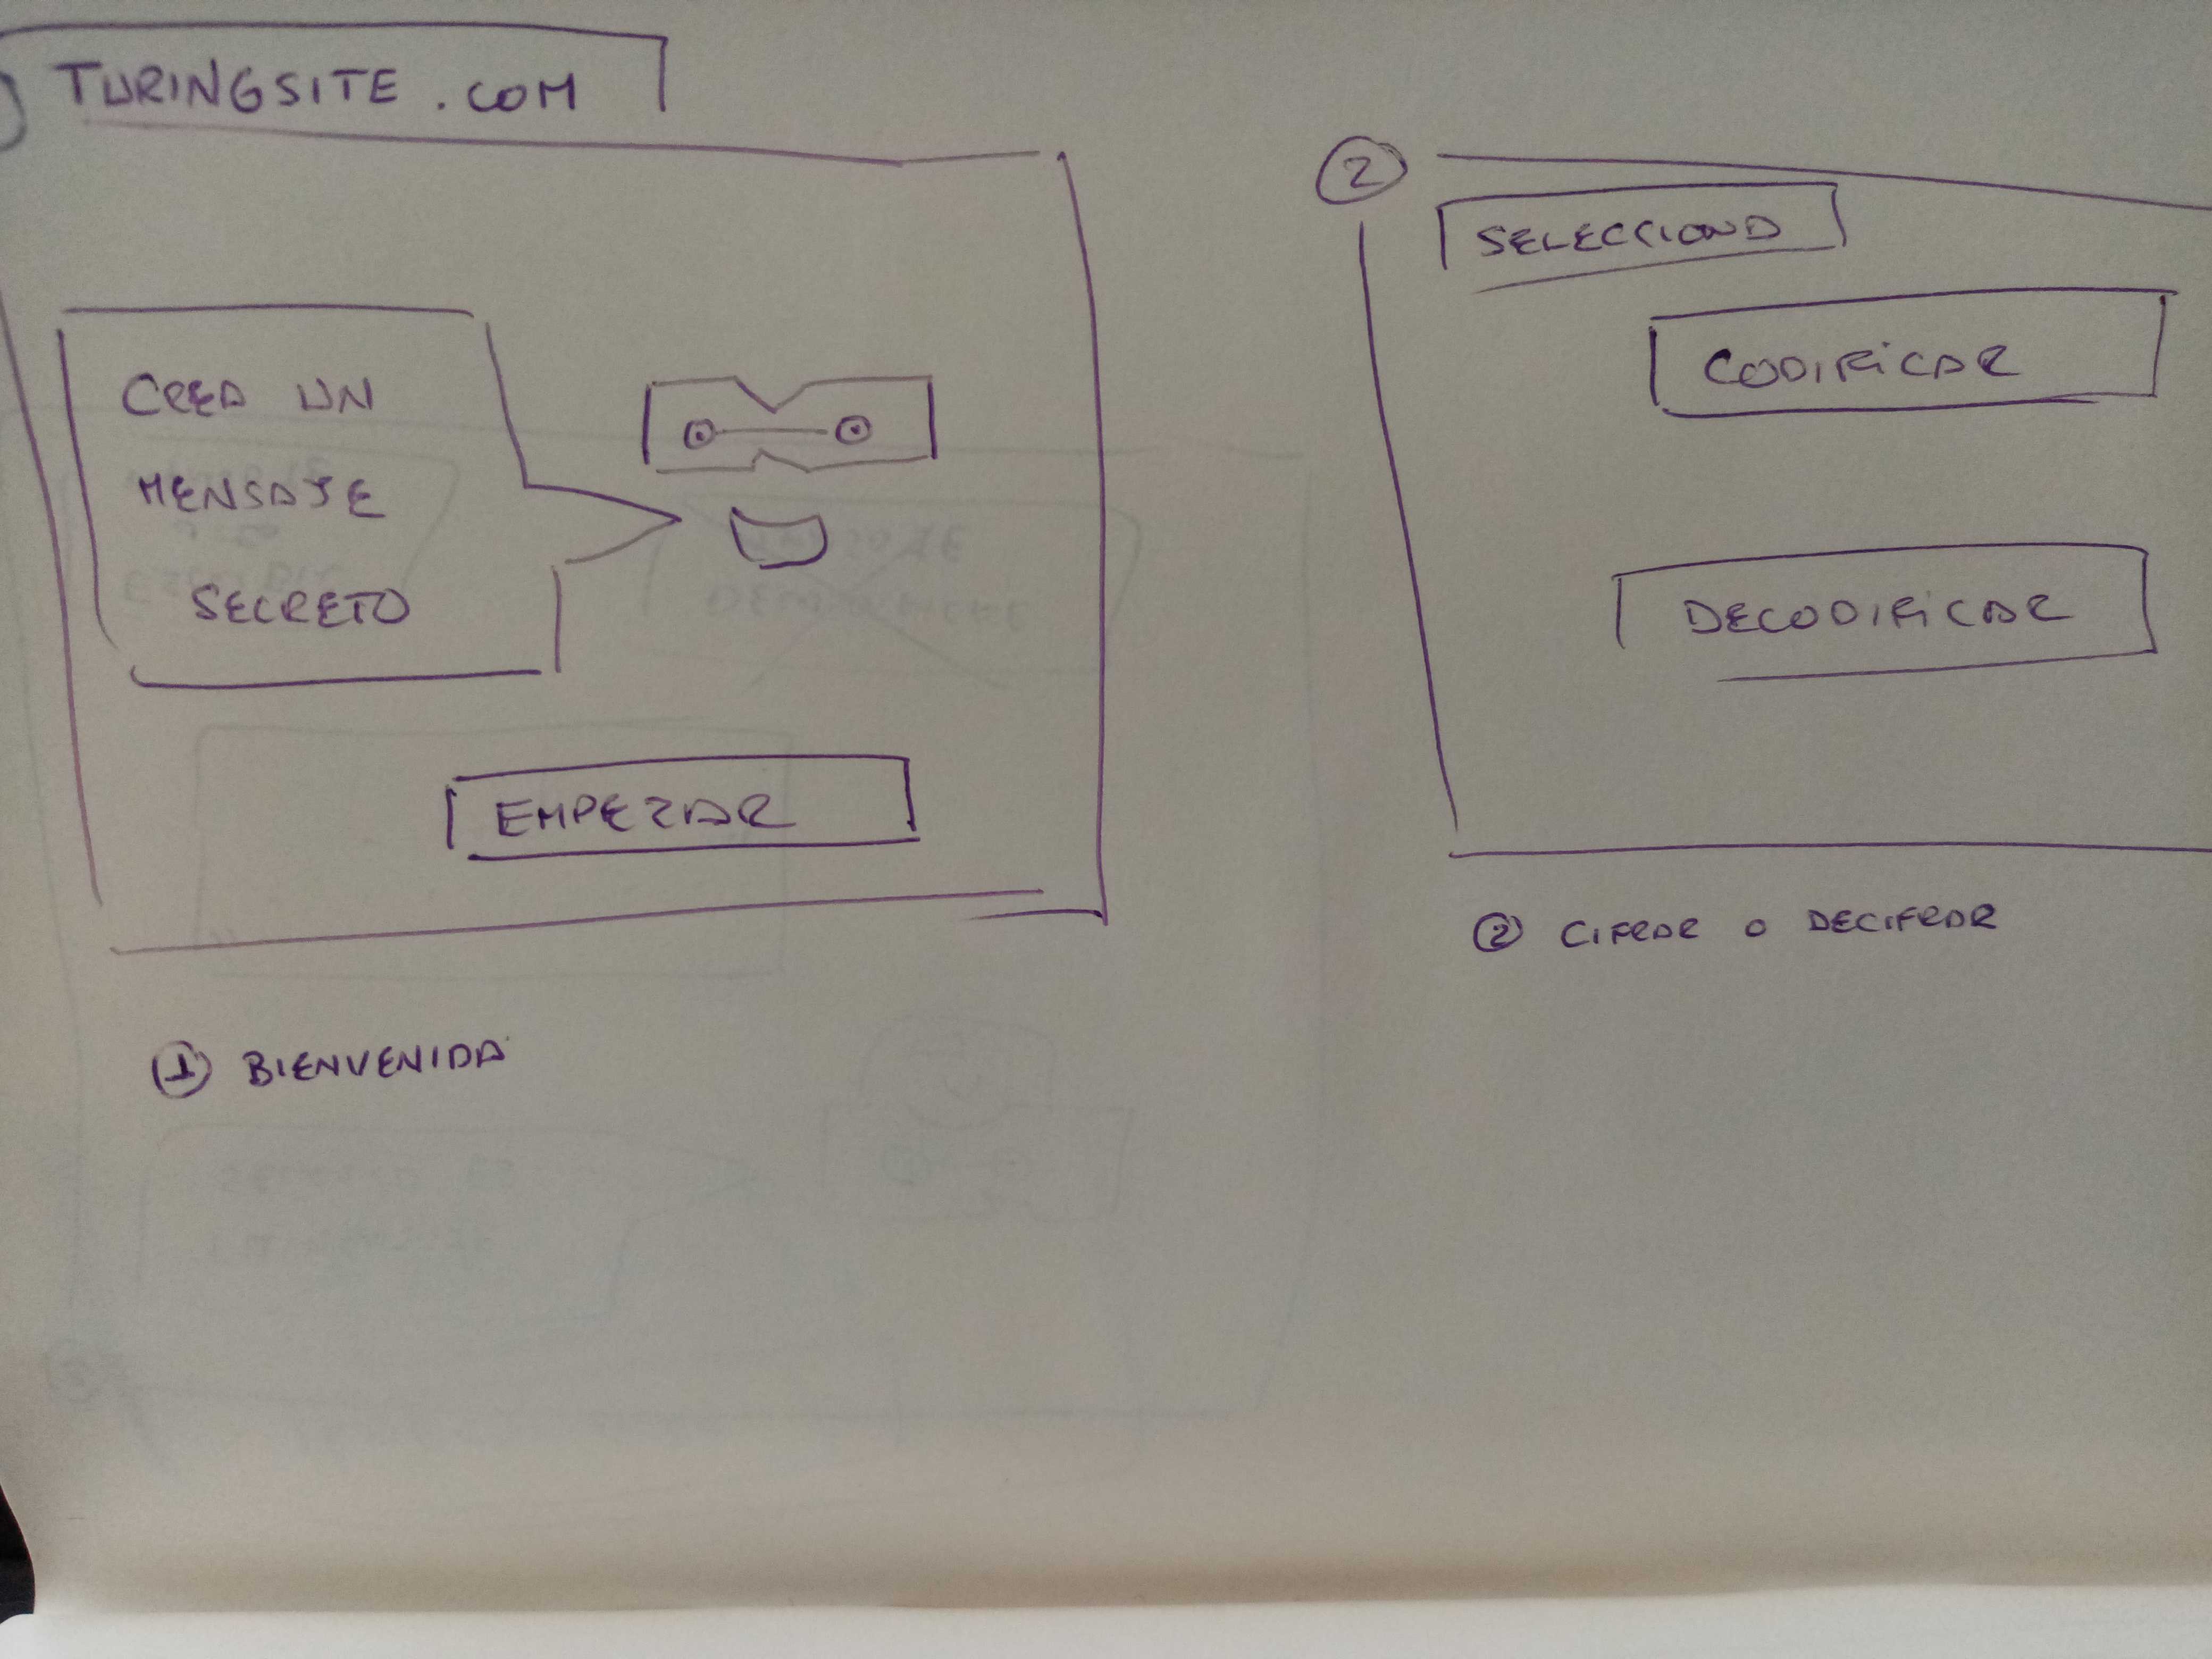 TURINGSITE.COM
CREA UN
MENSAJE
SECRETO
EMPEZAR
① BIENVENIDA
②
SELECCIONA
CODIFICAR
DECODIFICAR
② CIFRAR O DECIFRAR